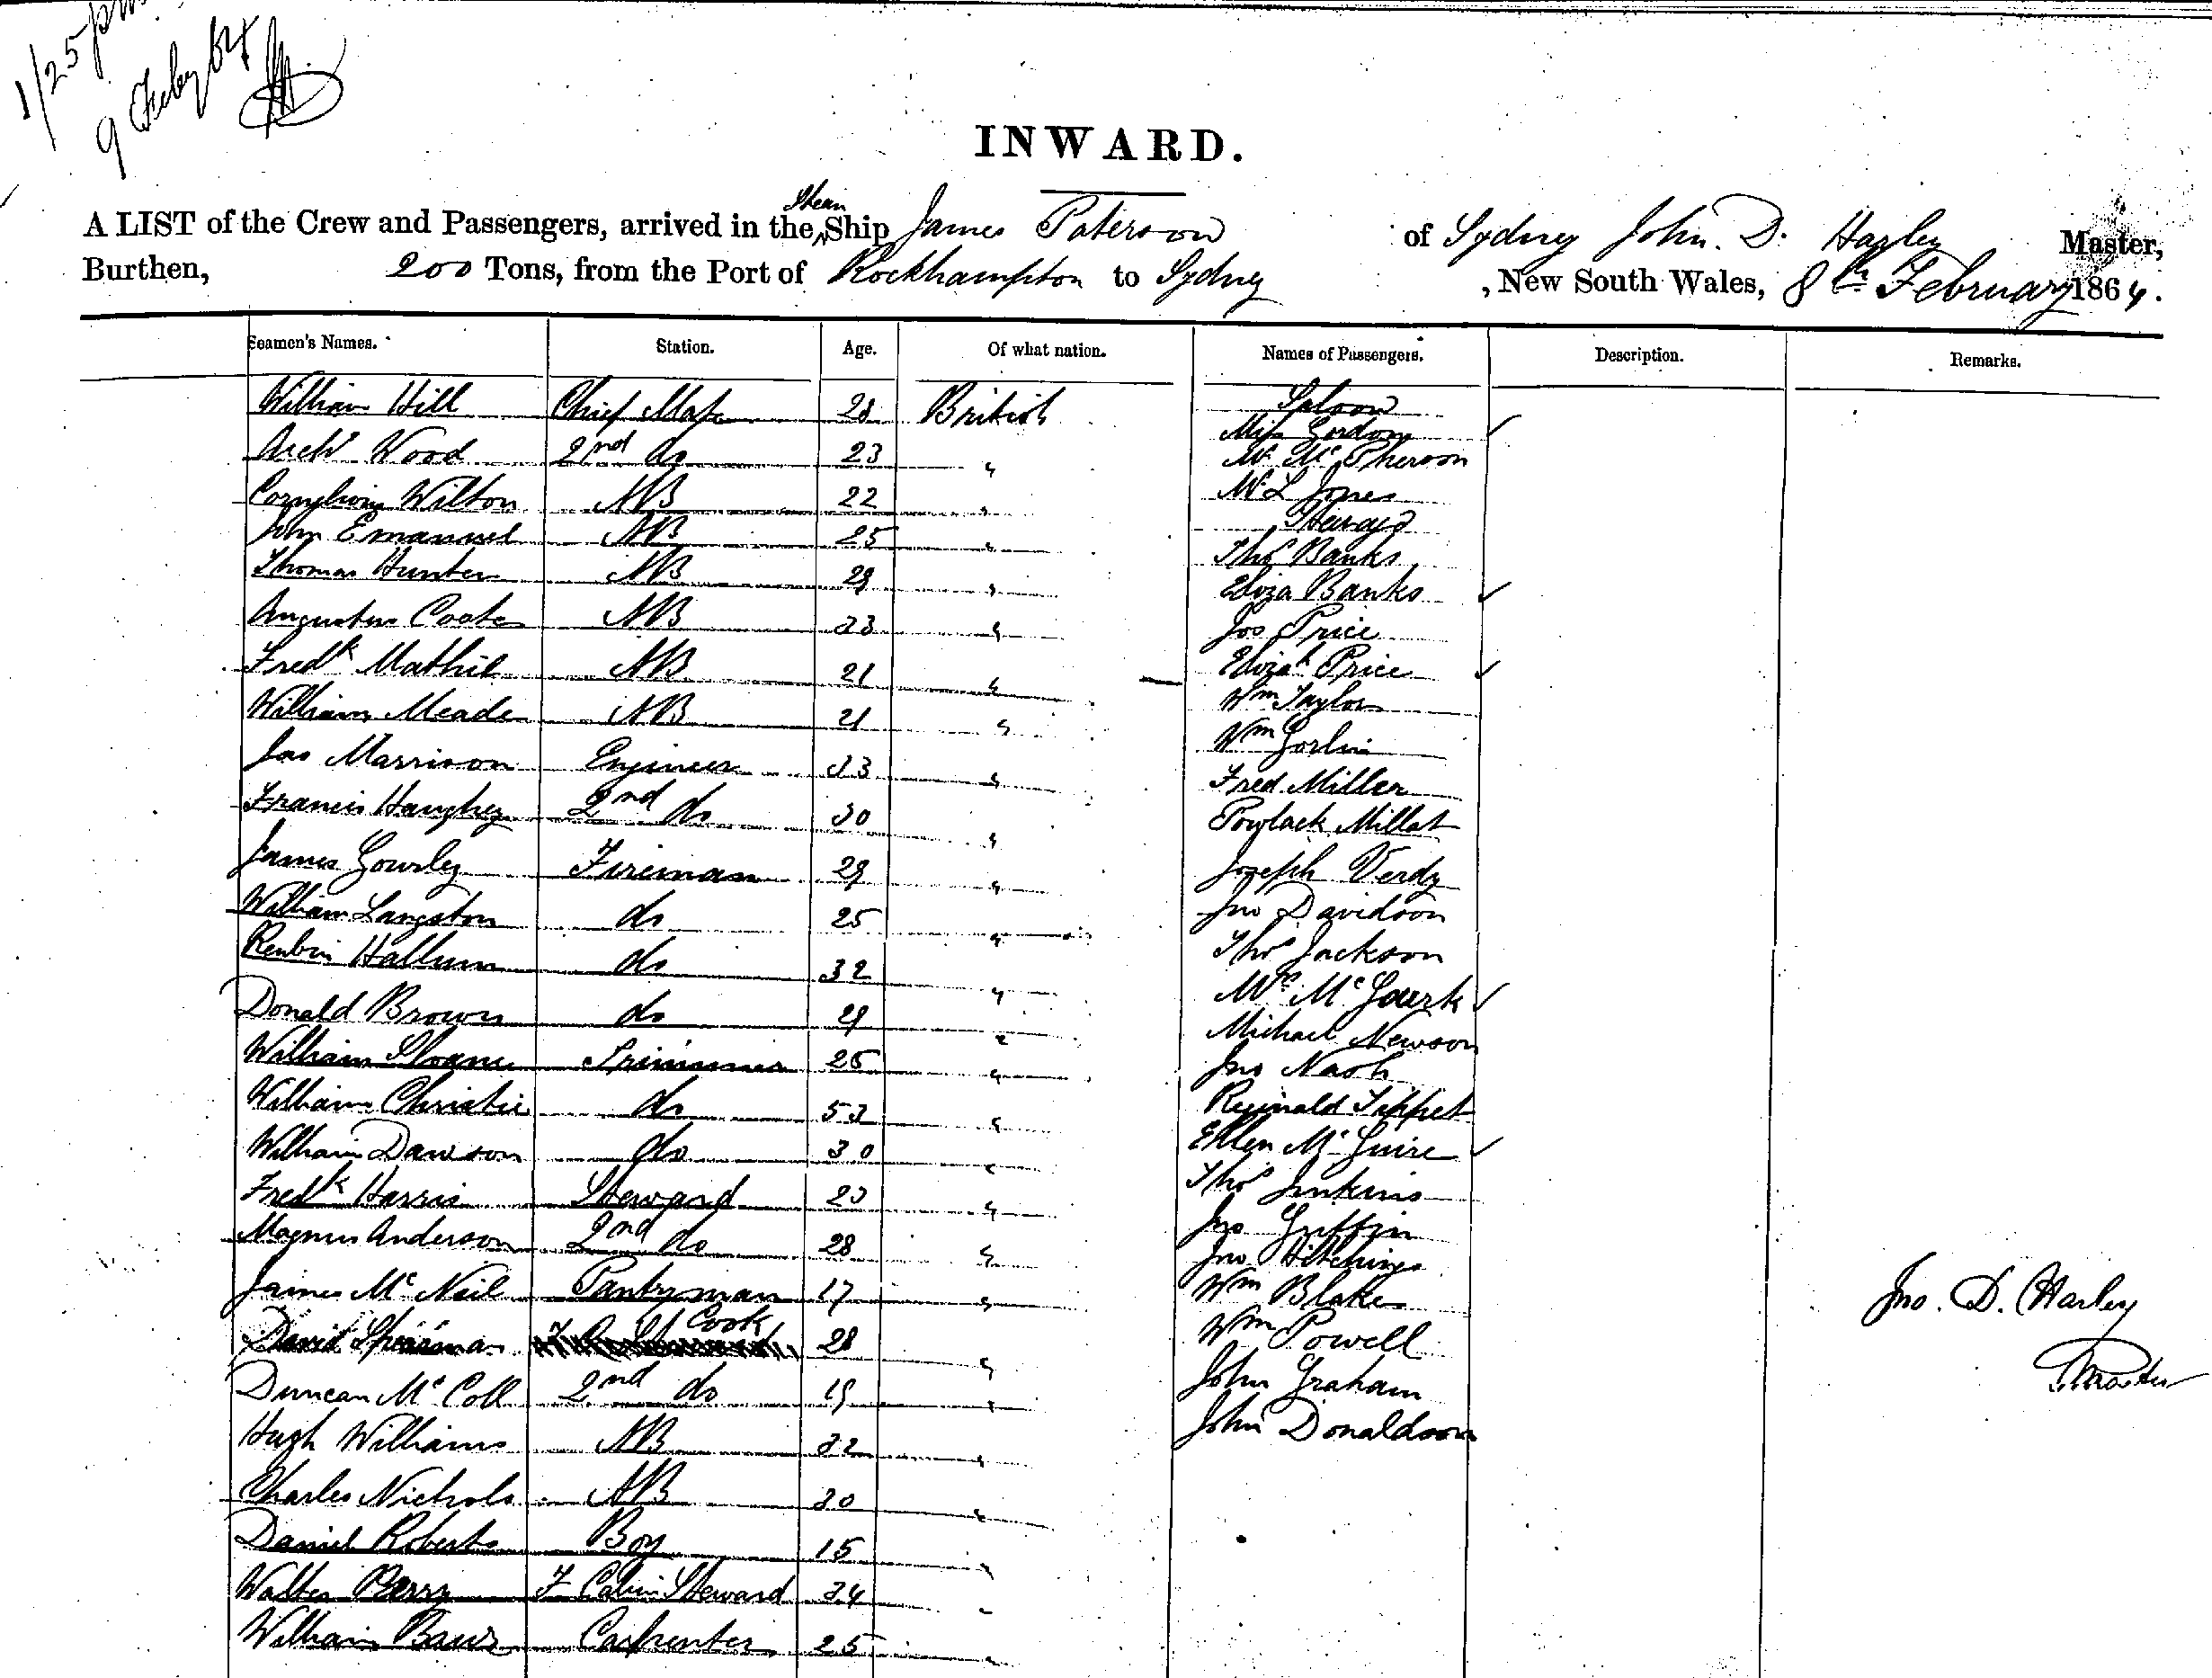 1/25 pm
9 Feby 64
INWARD.
Steam
A LIST of the Crew and Passengers, arrived in the Ship James Paterson of Sydney John. D. Harley Master,
Burthen, 200 Tons, from the Port of Rockhampton to Sydney , New South Wales, 8th February 1864.
Seamen's Names. Station. Age. Of what nation. Names of Passengers. Description. Remarks.
William Hill Chief Mate 28 British Saloon
Miss Gordon ✓
Archd Wood 2nd do 23 " Mr McPherson
Cornylius Wilton AB 22 " Mr L Jones
Steerage
John Emanuel AB 25 " Thos Banks
Thomas Hunter AB 29 " Eliza Banks ✓
Augustus Coates AB 23 " Jos Price
Fredk Mathie AB 21 " Elizah Price ✓
Wm Taylor
William Meade AB 21 " Wm
Jas Marrison Engineer 33 " Fred Miller
Francis Haughey 2nd do 30 " Millat
James Gourley Fireman 29 " Joseph Verdy
William Langston do 25 " Jno Davidson
Reubin Hallum do 32 " Thos Jackson
Donald Brown do 29 " Mrs McGuerk ✓
Michael Newson
William Sloane Trimmer 26 " Jno Nash
William Christie do 53 " Reginald Tippet
William Dawson do 30 " Ellen McGuire ✓
Fredk Harris Steward 23 " Thos Jenkins
Jno Griffin
Magnus Anderson 2nd do 28 " Jno Hitchings
James McNeil Pantryman 17 " Wm Blake
Jno. D. Harley
David Cook 28 " Wm Powell
Master
Duncan McColl 2nd do 19 " John Graham
Hugh Williams AB 32 " John Donaldson
Charles Nichols AB 30 "
Daniel Roberts Boy 15 "
Walter Berry F Cabin Steward 34 "
William Carpenter 25 "